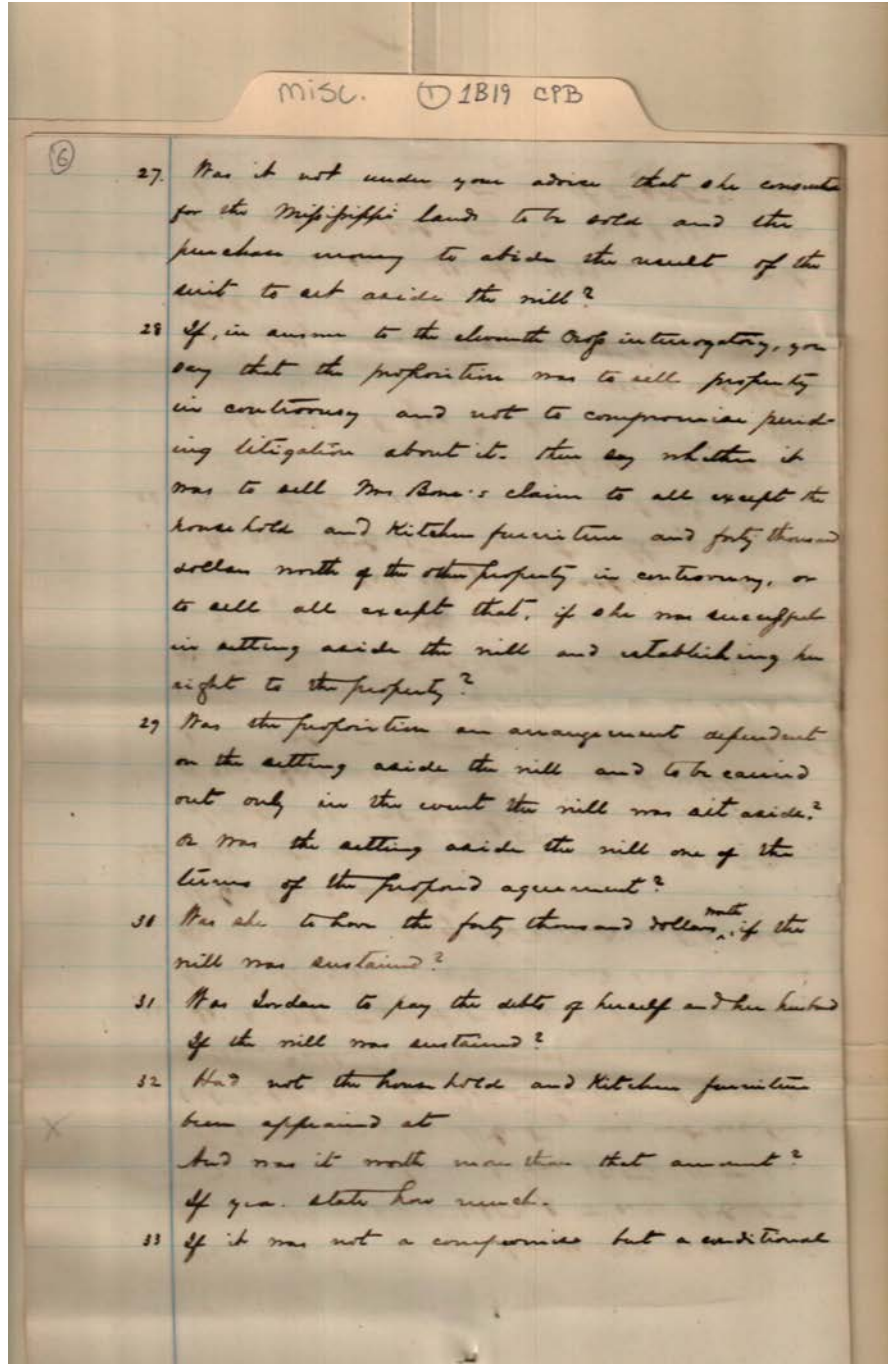 misc. ① 1B19 CPB
6
27. Was it not under your advice that she consented
for the Mississippi lands to be sold and the
purchase money to abide the result of the
suit to set aside the will?
28 If, in answer to the eleventh Cross interrogatory, you
say that the proposition was to sell property
in controversy and not to compromise pend-
ing litigation about it. then say whether it
was to sell Mrs Bone's claim to all except the
household and Kitchen furniture and forty thousand
dollars worth of the other property in controversy, or
to sell all except that, if she was successful
in setting aside the will and establishing her
right to the property?
29 Was the proposition an arrangement dependent
on the setting aside the will and to be carried
out only in the event the will was set aside?
or was the setting aside the will one of the
terms of the proposed agreement?
30 Was she to have the forty thousand dollars worth if the
will was sustained?
31 Was Jordan to pay the debts of herself and her husband
If the will was sustained?
32 Had not the household and Kitchen furniture
X
been appraised at
And was it worth more than that amount?
If yea. state how much.
33 If it was not a compromise but a conditional